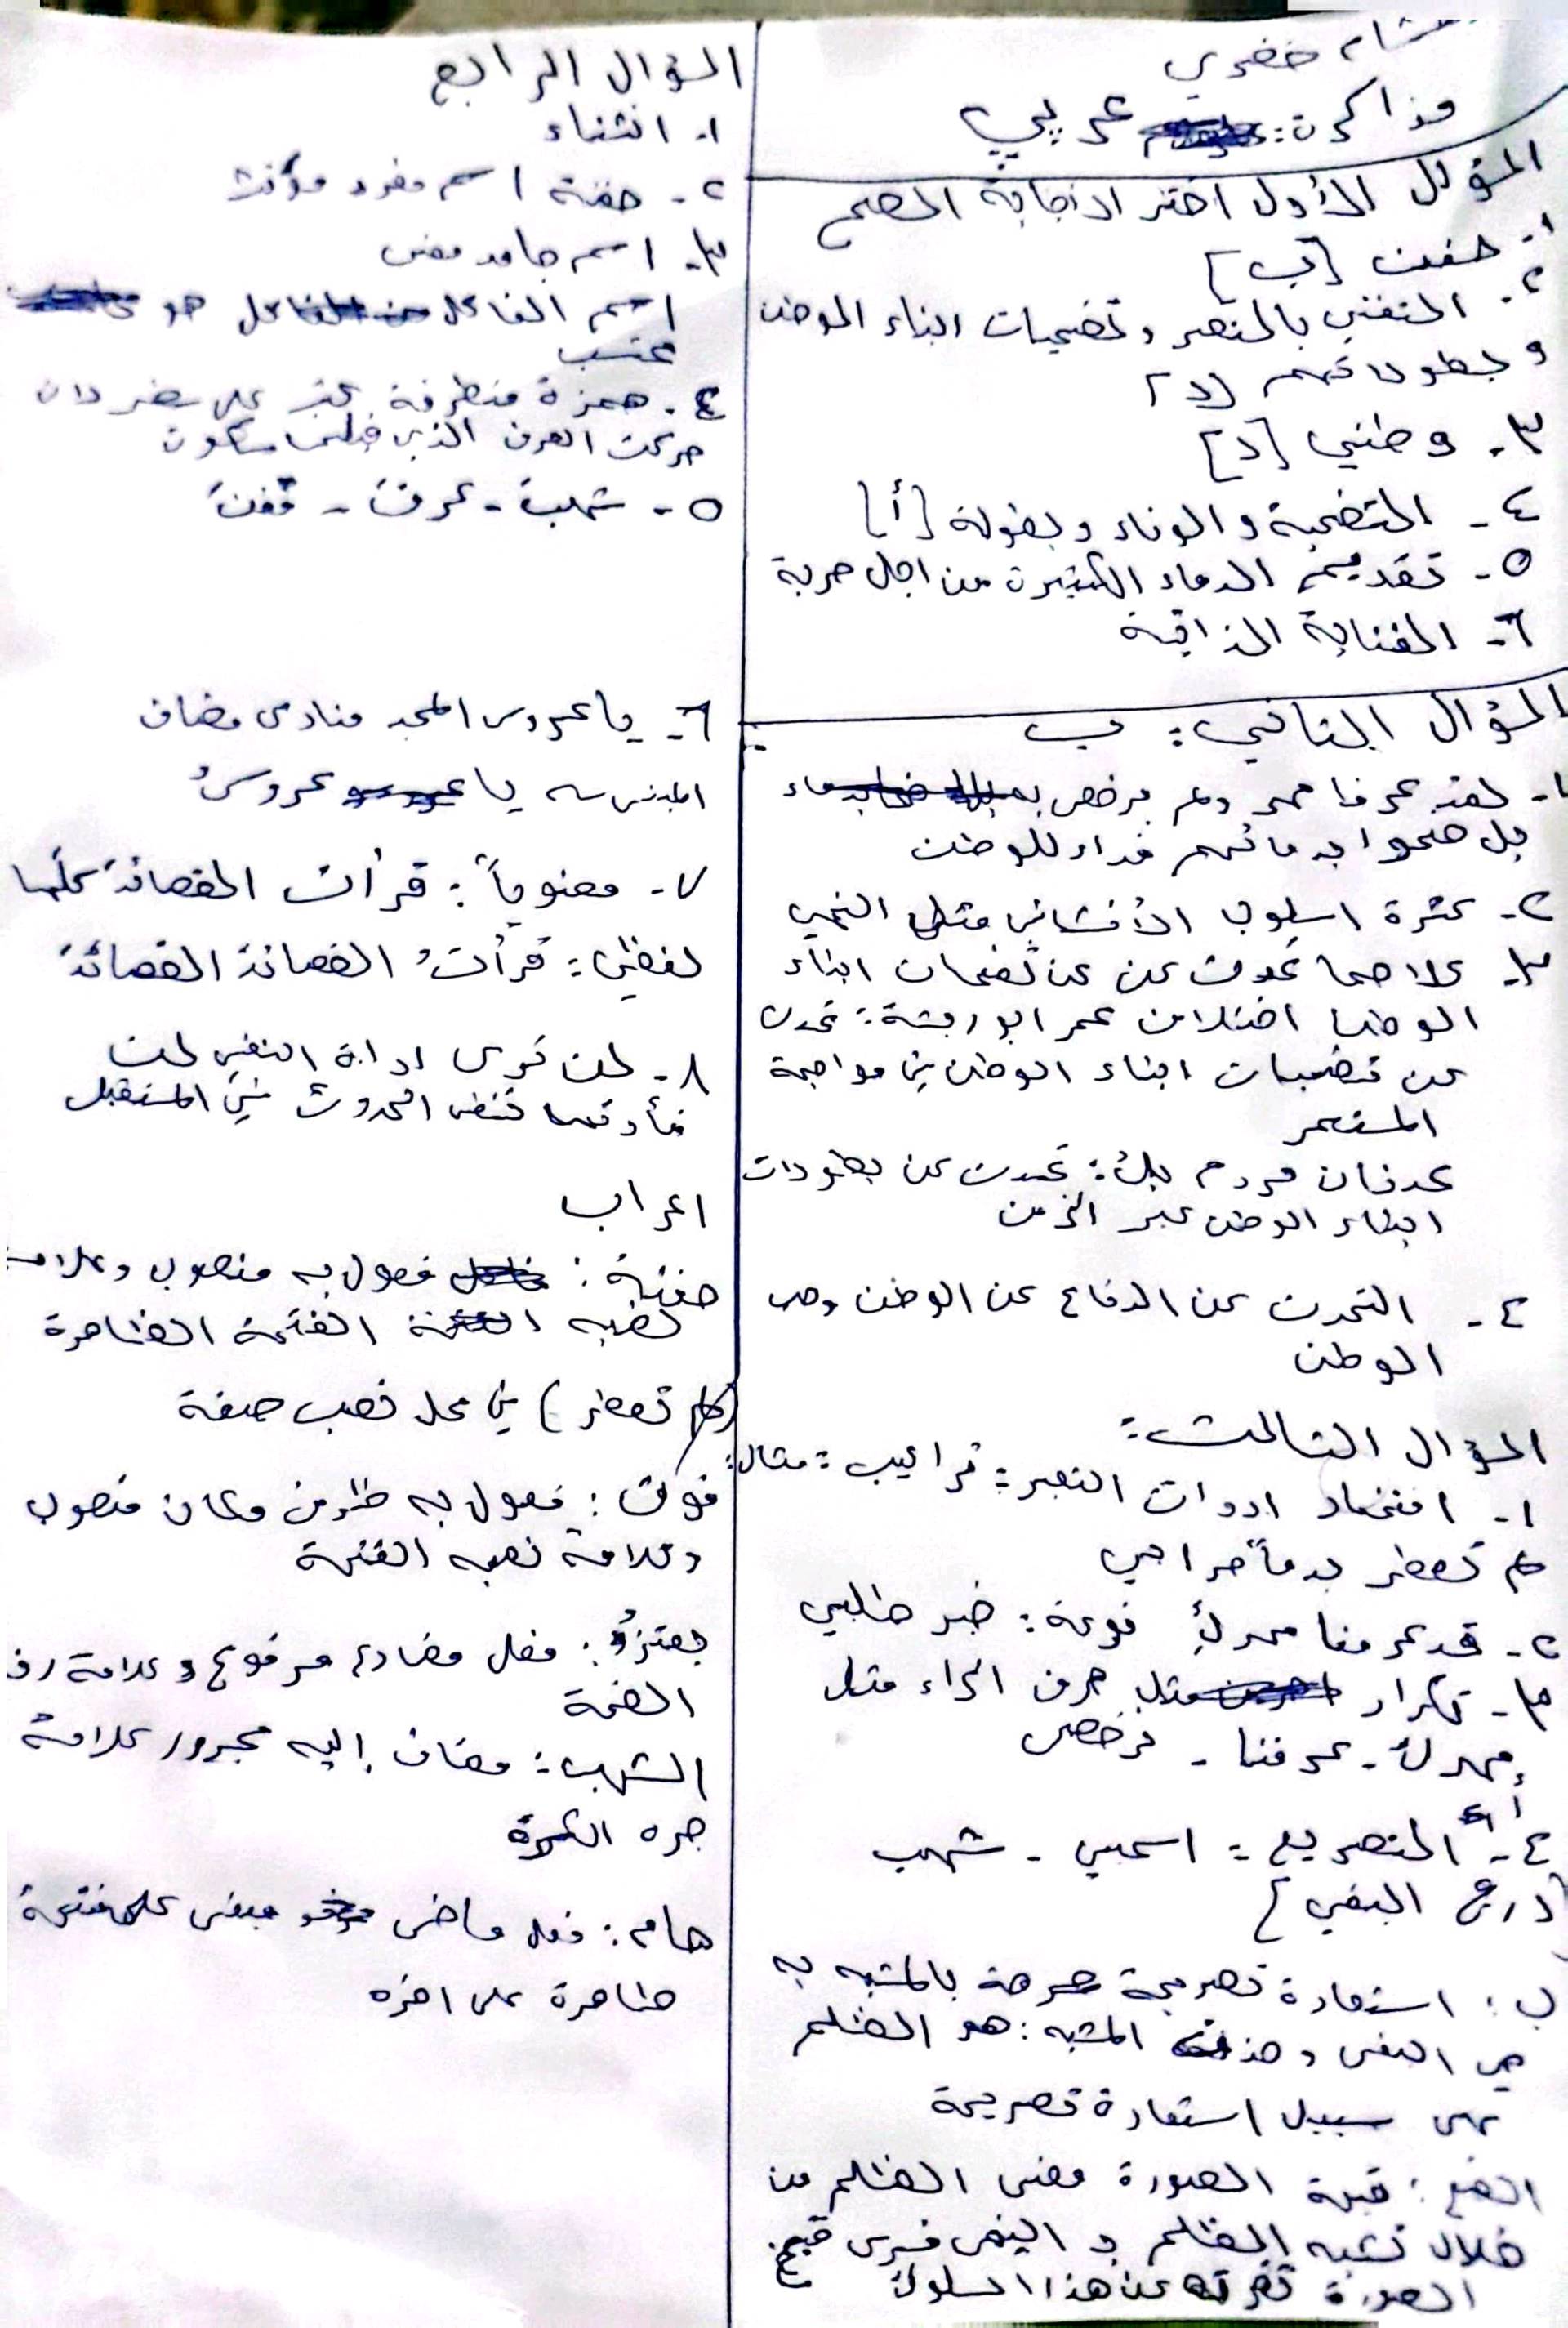 خضري
مذاكرة: عربي
السؤال الأول اختر الاجابة الصح
١- حفنت [ب]
٢- التغني بالنصر وتضحيات ابناء الوطن
وبطولاتهم [د]
٣- وطني [د]
٤- التضحية والوفاء وبطولة [أ]
٥- تقديم الدماء الكثيرة من اجل حرية
٦- الغنائية الذاتية
السؤال الثاني: ب
١- لقد عرفنا مهر ولم يرخص
بل ضحوا بدمائهم فداء للوطن
٢- كثرة اسلوب الأنشائي مثل النهي
٣- كلاهما تحدث عن عن تضحيات ابناء
الوطن اختلاف عمر ابو ريشة: تحدث
عن تضحيات ابناء الوطن في مواجهة
المستعمر
عدنان مردم بك: تحدث عن بطولات
ابناء الوطن عبر الزمن
٤- التحدث عن الدفاع عن الوطن وحب
الوطن
السؤال الثالث:
١- ادوات التعبير: تراكيب: مثال:
لم تعطر بدما حر أبي
٢- قد عرفنا مهرك نوعه: خبر طلبي
٣- تكرار حرف الراء مثل
مهرك - عرفنا - نرخص
٤- أ التصريع: اسحبي - شهب
[درج البغي]
ب: استعارة تصريحية صرحة بالمشبه به
هي البغي وحذفت المشبه: هو الظلم
على سبيل استعارة تصريحية
قبحة الصورة معنى الظلم من
خلال تشبه الظلم بـ البغي فنرى قبح
الصورة عن هذا السلوك
السؤال الرابع
١- انثناء
٢- حفنة اسم مفرد مؤنث
٣- اسم جامد معنى
اسم الفاعل هو
٤- همزة متطرفة كتبت على سطر لأن
حركت الحرف الذي قبلها سكون
٥- شهب - عرف -
٦- يا عروس المجد منادى مضاف
يا عروسُ
٧- معنوياً: قرأت القصائدَ كلَّها
لفظي: قرأتُ القصائدَ القصائدَ
٨- لن نرى اداة النفي لن
فأدتها تنفي الحدوث في المستقبل
اعراب
حفنةً: مفعول به منصوب وعلامة
نصبه الفتحة الظاهرة
(لم تعطر) في محل نصب صفة
فوق: مفعول به ظرف مكان منصوب
وعلامة نصبه الفتحة
يعتزُّ: فعل مضارع مرفوع وعلامة رفـ
الضمة
الشهب: مضاف إليه مجرور علامة
جره الكسرة
هام: فعل ماضي مبني على فتحة
ظاهرة على اخره